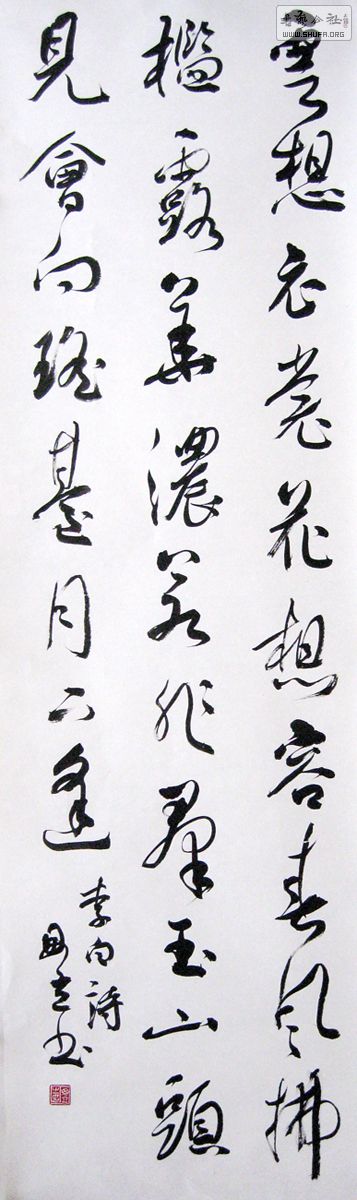 雲想衣裳花想容春風拂
檻露華濃若非羣玉山頭
見會向瑤臺月下逢
李白詩
書法公社
WWW.SHUFA.ORG